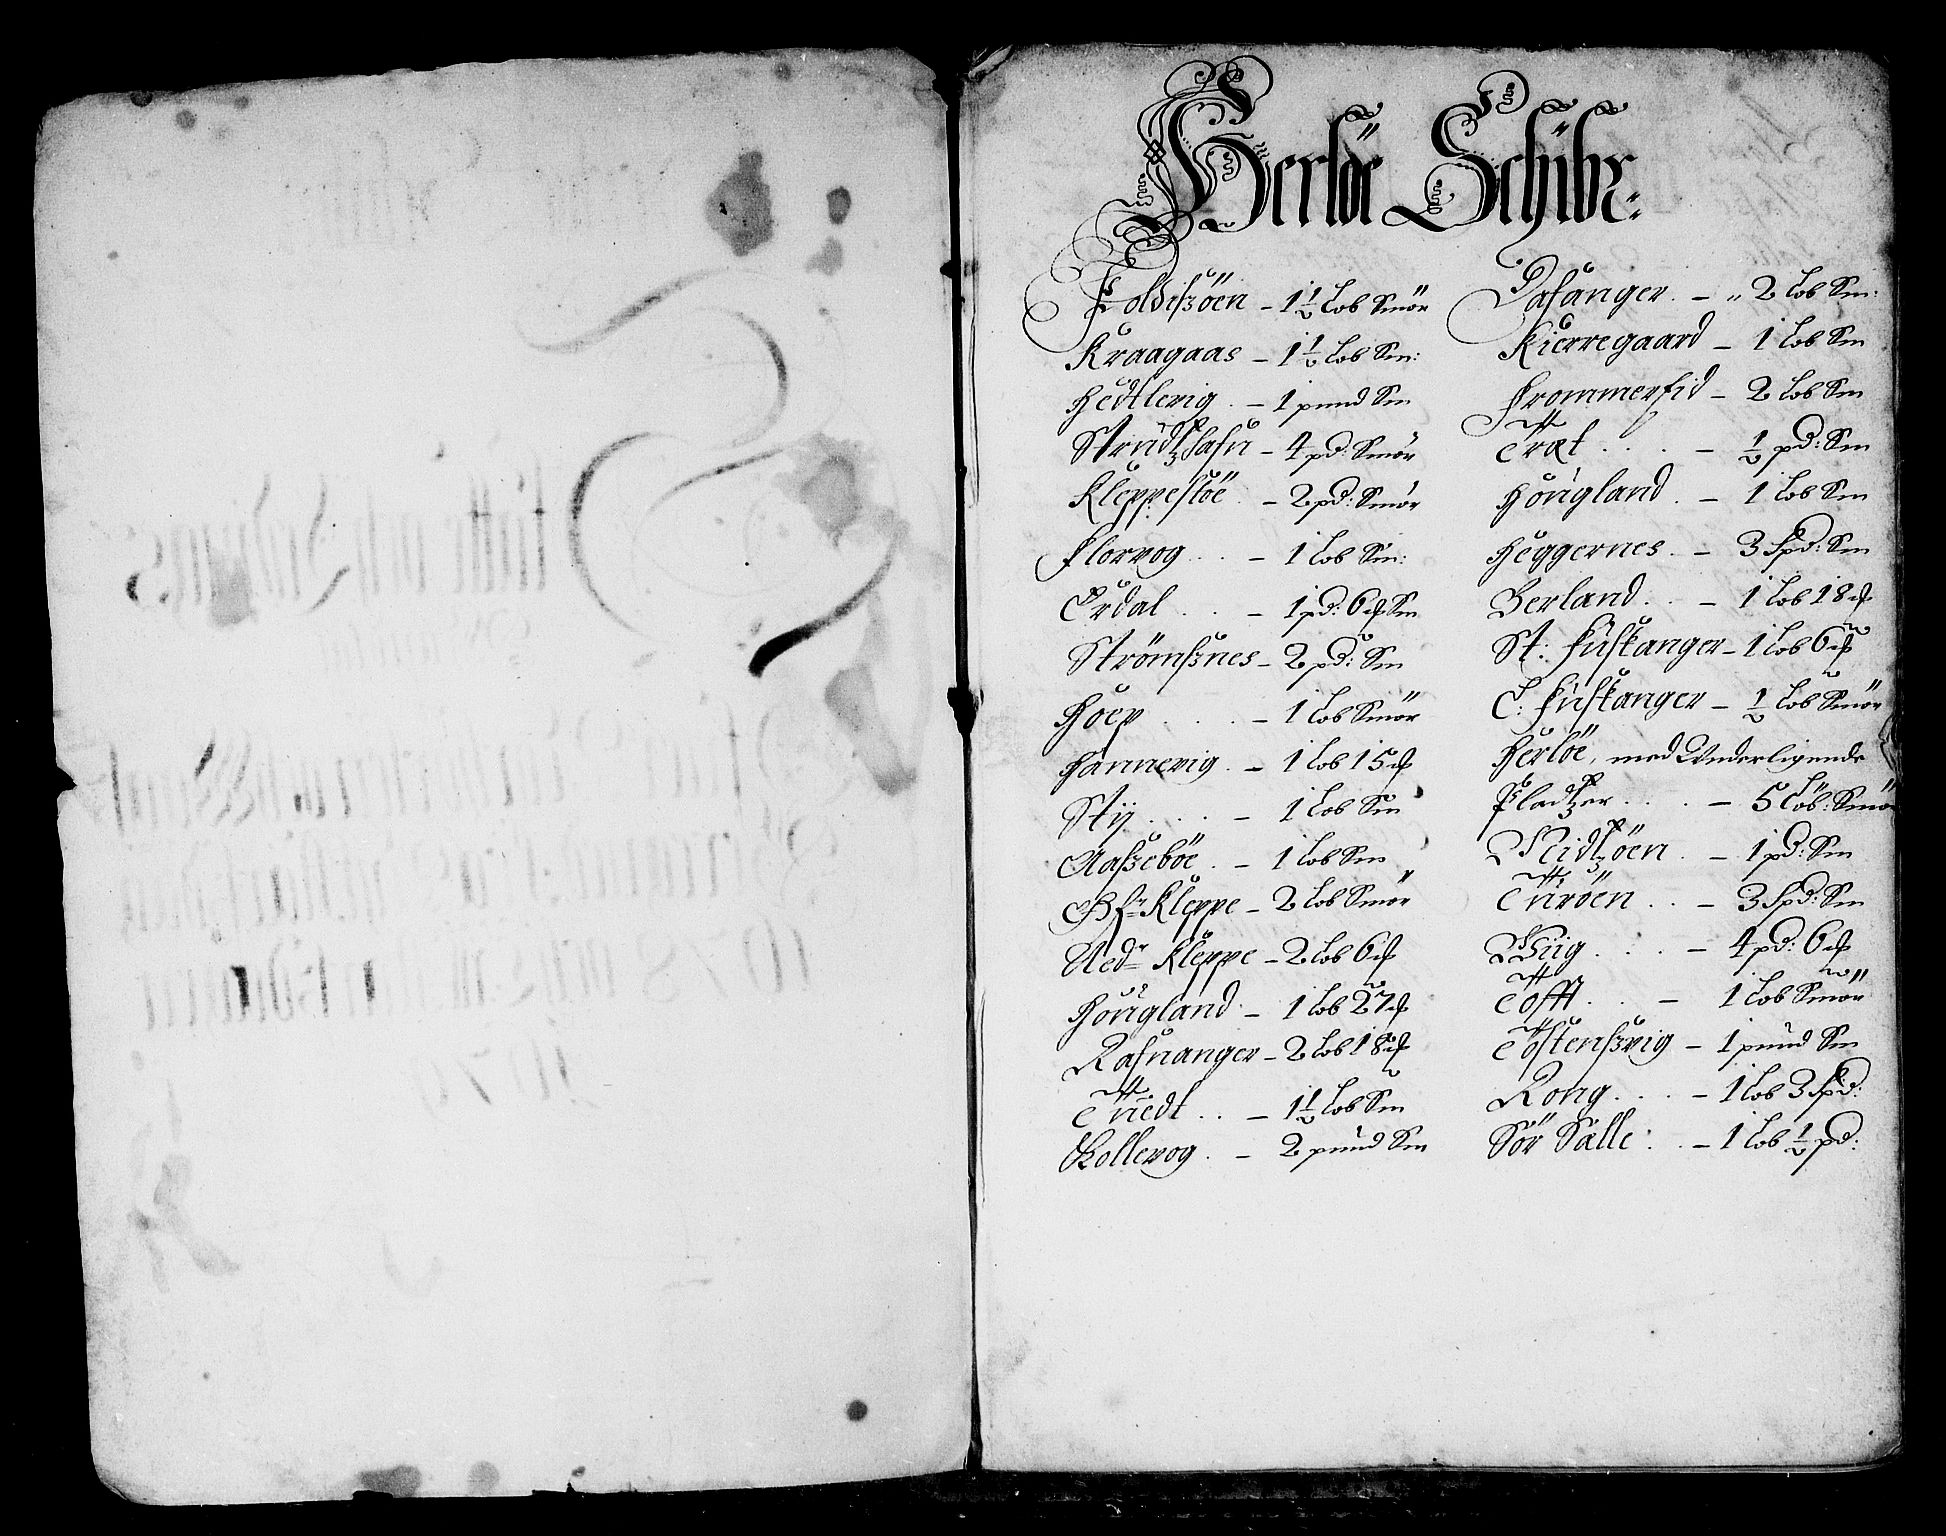 Herlöe Schibr:
Foldisöen - 1½ Lob Smör
Kraagaas - 1½ Lob Sm:
Hedtlevig - 1 pund Sm
Strudtzhafn - 4 pd: Smör
Kleppestöe - 2 pd: Smör
Florvog - 1 Lob Sm:
Erdal - 1 pd: 6 ₰ Sm
Strömsnes - 2 pd: Sm
Hoep - 1 Lob Smör
Hannevig - 1 Lob 15 ₰
Stij - 1 Lob Sm
Aaseböe - 1 Lob Sm
Kleppe - 2 Lob Smör
Nedr Kleppe - 2 Lob 6 ₰
Hougland - 1 Lob 27 ₰
Rafnanger - 2 Lob 18 ₰
Tuedt - 1½ Lob Sm
Kollevog - 2 pund Sm
Dafanger - " 2 Lob Sm:
Kierregaard - 1 Lob Sm
Frommersid - 2 Lob Sm
Træt - ½ pd: Sm
Hougland - 1 Lob Sm
Heggernes - 3 Spd: Sm
Berland - 1 Lob 18 ₰
St: Fuskanger - 1 Lob 6 ₰
L: Fuskanger - ½ Lob Smör
Herlöe, med Underligende
Pladtzer - 5 Löb: Smör
Nidtzöen - 1 pd: Sm
Turöen - 3 Spd: Sm
Vüig - 4 pd: 6 ₰
Tofft - 1 Lob Smör
Tostensvig - 1 pund Sm
Rong - 1 Lob 3 Spd:
Sör Sælle: - 1 Lob ½ pd: